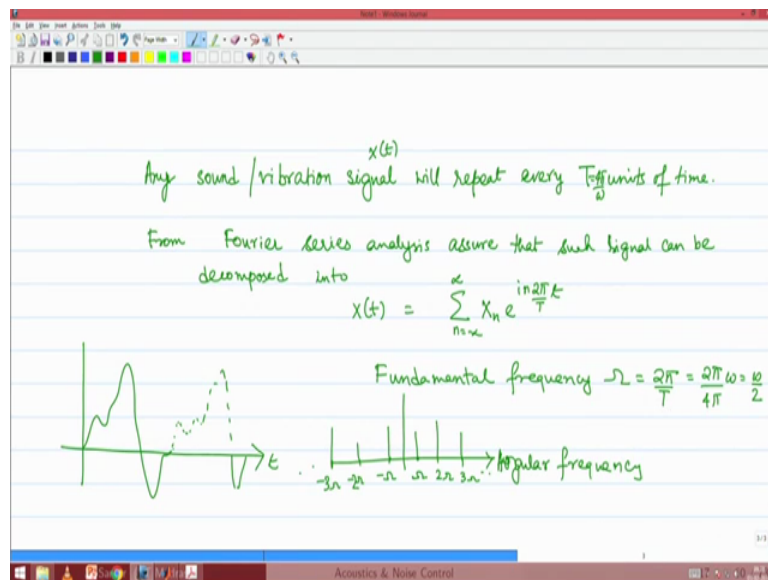 Note1 - Windows Journal
File Edit View Insert Actions Tools Help
Page Width
B I
x(t)
Any sound/vibration signal will repeat every T=4π/ω units of time.
From Fourier series analysis assure that such signal can be
decomposed into
x(t) = ∑ n=-∞ ∞ Xn e^(in 2π/T t)
Fundamental frequency Ω = 2π/T = 2π/4π ω = ω/2
t
.. -3Ω -2Ω -Ω Ω 2Ω 3Ω .. Angular frequency
3/3
Acoustics & Noise Control